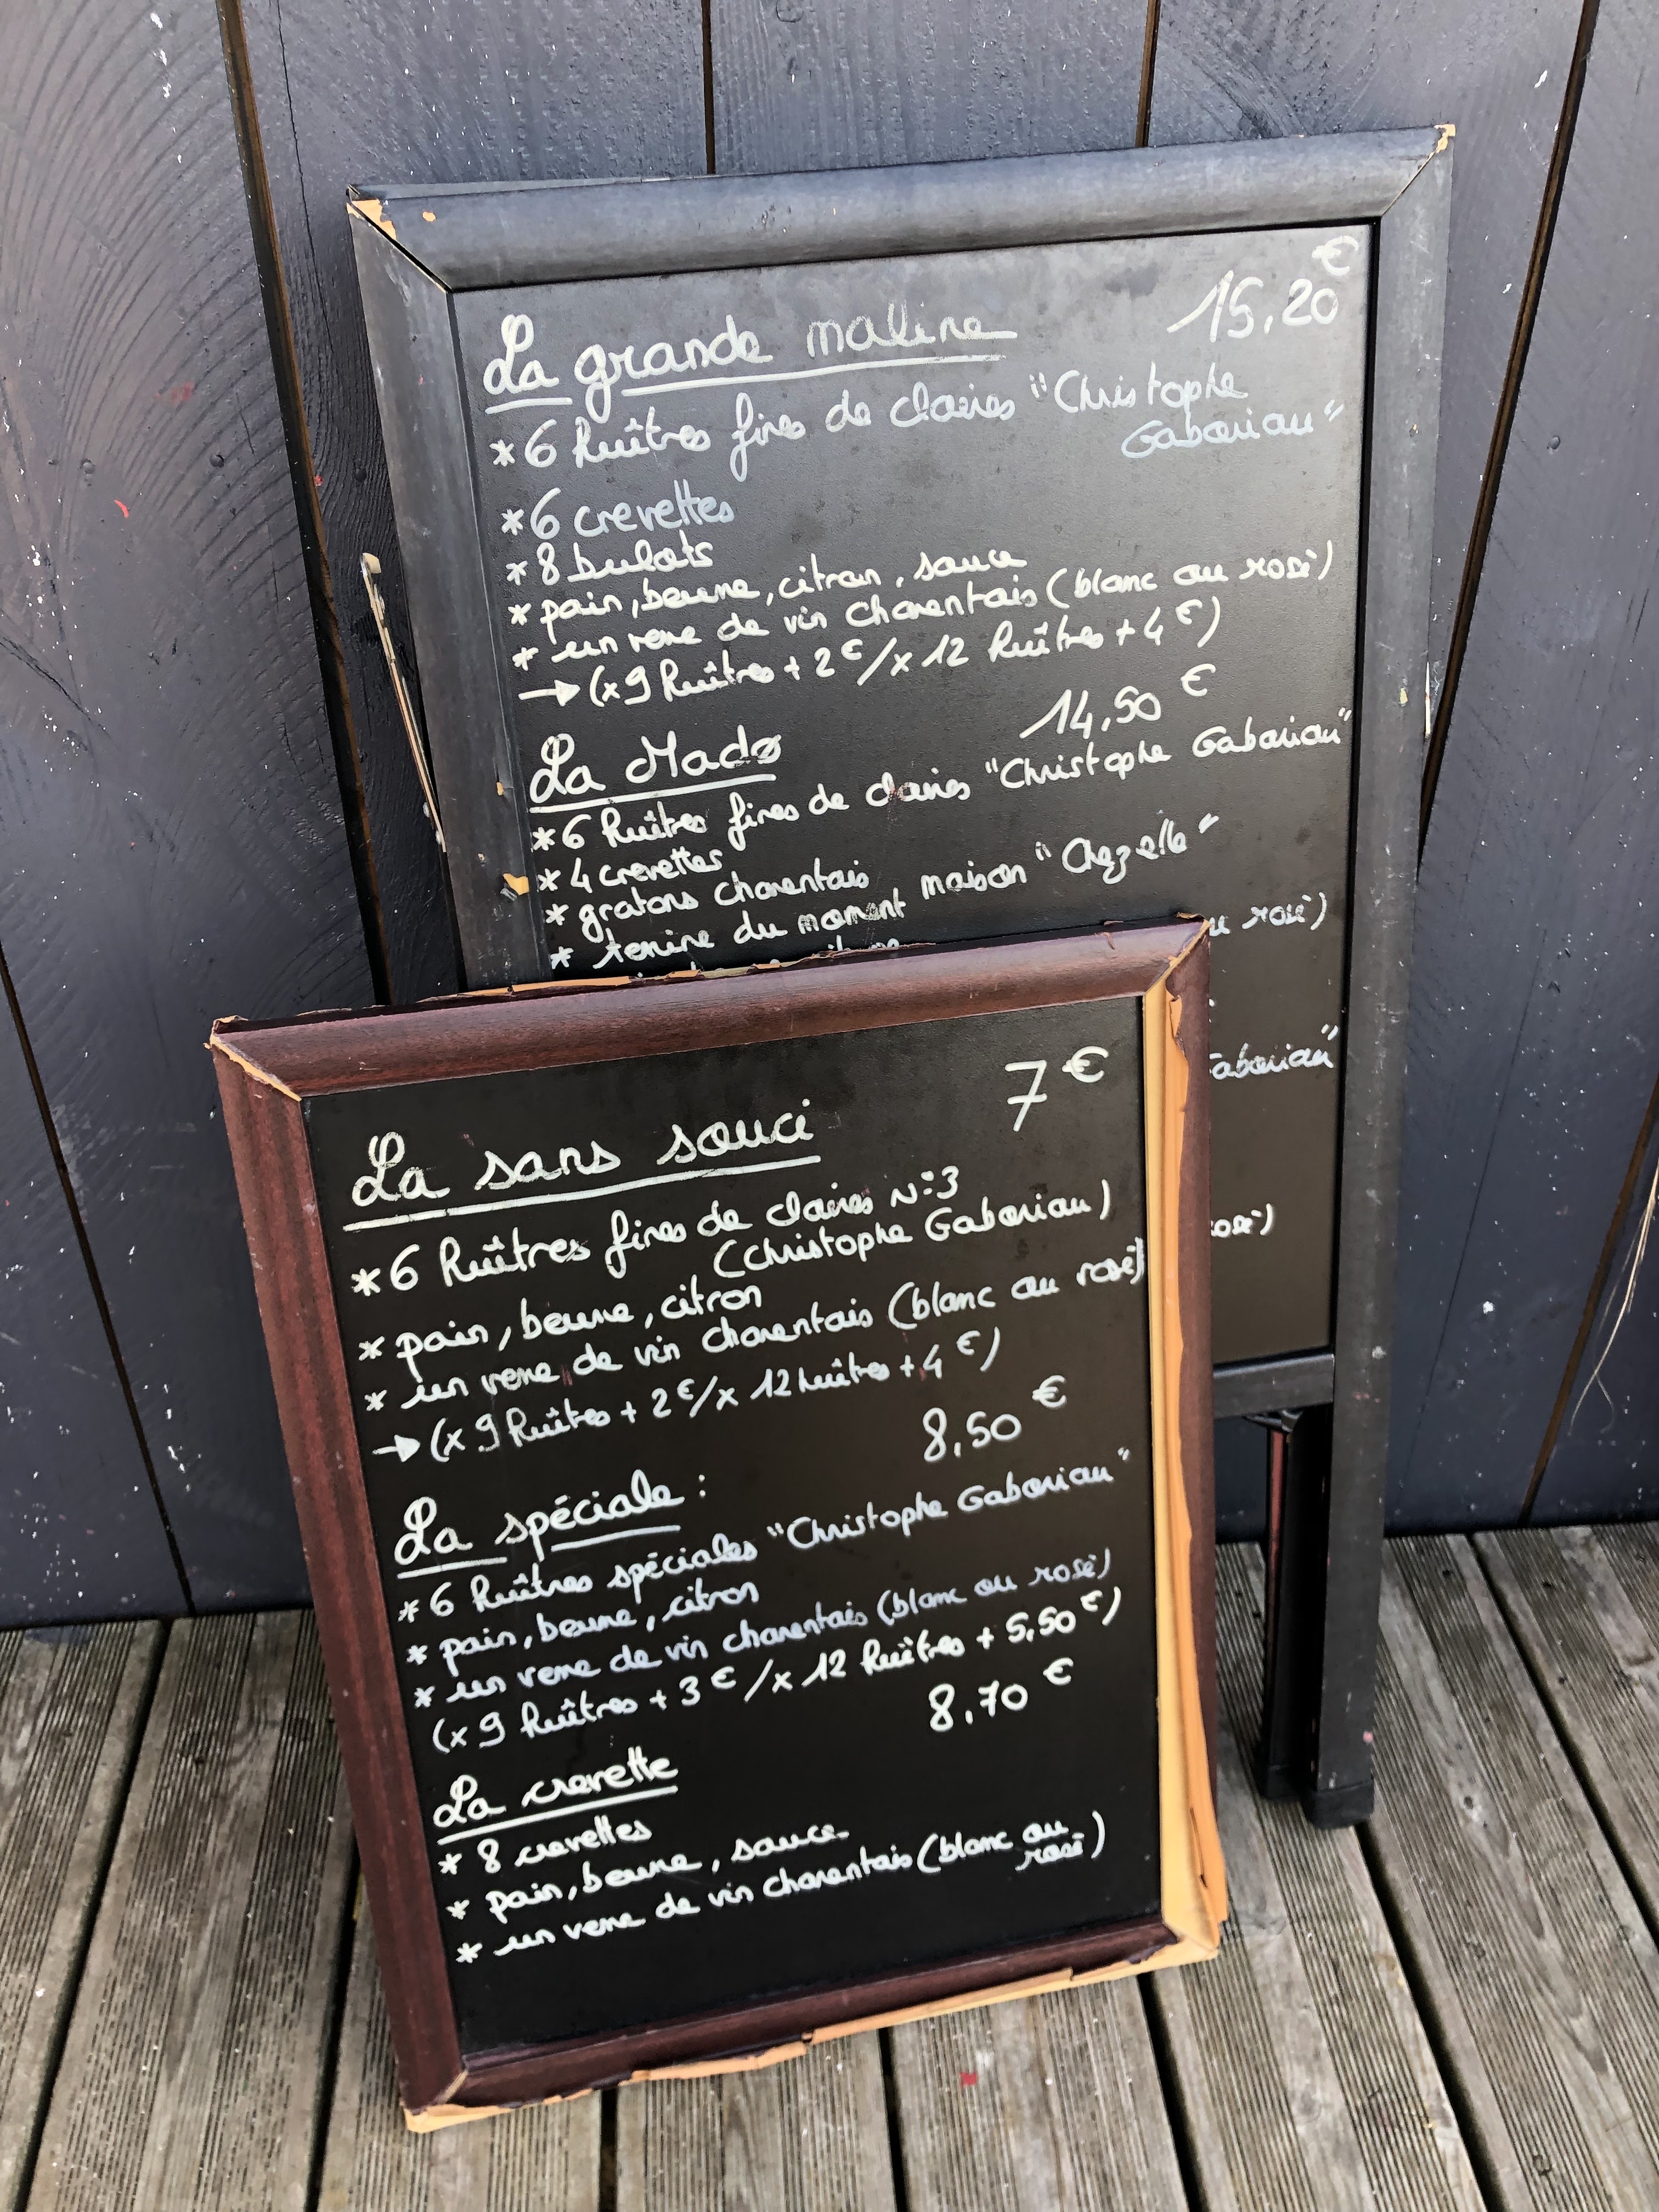 La grande maline 15,20€
*6 huîtres fines de claires "Christophe
Gaboriau"
*6 crevettes
*8 bulots
* pain, beurre, citron, sauce
* un verre de vin charentais (blanc ou rosé)
→ (x9 huîtres + 2€/x 12 huîtres + 4€)
La Mado 14,50 €
*6 huîtres fines de claires "Christophe Gaboriau"
* 4 crevettes
* gratons charentais
* terrine du moment maison "Chezelle"
rosé)
La sans souci 7€
*6 huîtres fines de claires N°3
(Christophe Gaboriau)
* pain, beurre, citron
* un verre de vin charentais (blanc ou rosé)
→ (x 9 huîtres + 2€/x 12 huîtres + 4€)
La spéciale : 8,50 €
*6 huîtres spéciales "Christophe Gaboriau"
* pain, beurre, citron
* un verre de vin charentais (blanc ou rosé)
(x 9 huîtres + 3€/x 12 huîtres + 5,50€)
La crevette 8,70 €
* 8 crevettes
* pain, beurre, sauce
* un verre de vin charentais (blanc ou
rosé)